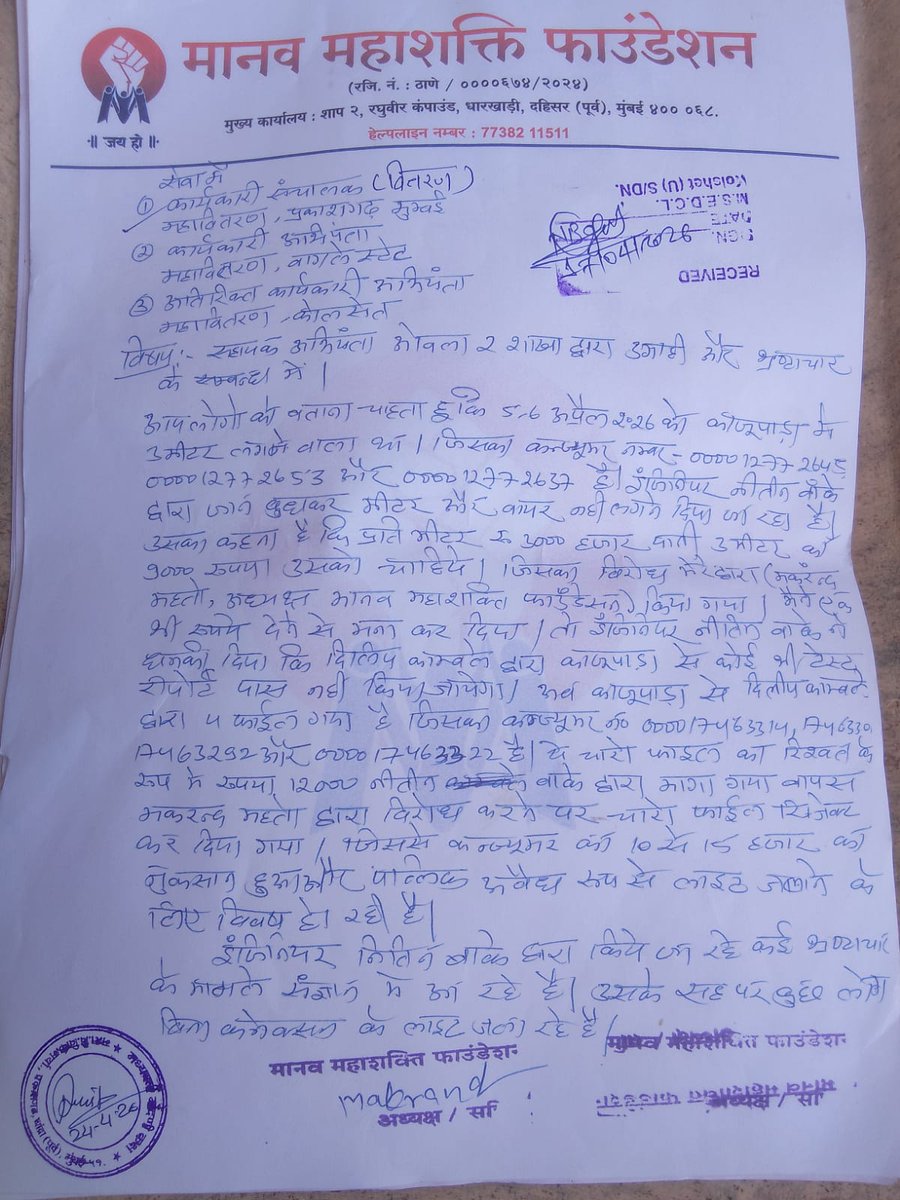 मानव महाशक्ति फाउंडेशन
(रजि. नं. : ठाणे / ००००६७४/२०२४)
मुख्य कार्यालय : शाप २, रघुवीर कंपाउंड, धारखाड़ी, दहिसर (पूर्व), मुंबई ४०० ०६८.
हेल्पलाइन नम्बर : 77382 11511
॥ जय हो ॥
सेवा में
① कार्यकारी संचालक (वितरण)
महावितरण, प्रकाशगढ़ मुम्बई
② कार्यकारी अभियंता
महावितरण, वागले स्टेट
③ अतिरिक्त कार्यकारी अभियंता
महावितरण, कोलसेत
RECEIVED
SIGN.
DATE
M.S.E.D.C.L.
Kolshet (U) S/DN.
17/04/2026
विषय :- सहायक अभियंता ओवला २ शाखा द्वारा उगाही और भ्रष्टाचार
के सम्बन्ध में |
आप लोगो को बताना चाहता हूँ कि 5-6 अप्रैल 2026 को काजूपाड़ा मे
3 मीटर लगने वाला था | जिसका कन्ज्यूमर नम्बर - 000012772645,
000012772653 और 000012772637 है| इंजिनियर नीतीन वाके
द्वारा जान बुझकर मीटर और वायर नही लगने दिया जा रहा है|
उसका कहना है कि प्रति मीटर रु 3000 हजार यानी 3 मीटर का
9000 रूपया उसको चाहिये | जिसका विरोध मेरे द्वारा (मकरन्द
महतो, अध्यक्ष मानव महाशक्ति फाउंडेसन) किया गया | मैने एक
भी रूपये देने से मना कर दिया | तो इंजिनियर नीतिन वाके ने
धमकी दिया कि दिलिप काम्बले द्वारा काजूपाड़ा से कोई भी टेस्ट
रीपोर्ट पास नही किया जायेगा| अब काजूपाड़ा से दिलीप काम्बले
द्वारा 4 फाईल गया है जिसका कन्ज्यूमर no 000017463314,
17463292 और 000017463322 है| ये चारो फाइल का रिश्वत के
रूप मे रूपया 12000 नीतीन वाके द्वारा मागा गया वापस
मकरन्द महतो द्वारा विरोध करने पर चारो फाईल रिजेक्ट
कर दिया गया | जिससे कन्ज्यूमर का 10 से 15 हजार का
नुकसान हुआ और पब्लिक अवैध रूप से लाइट जलाने के
लिए विवष हो रही है|
इंजिनियर नितिन वाके द्वारा किये जा रहे कई भ्रष्टाचार
के मामले संज्ञान मे आ रहे है| उसके सह पर कुछ लोग
बिना कनेक्सन के लाइट जला रहे है|
मानव महाशक्ति फाउंडेशन
Makrand
अध्यक्ष /
मानव महाशक्ति फाउंडेशन
अध्यक्ष /
24-4-26